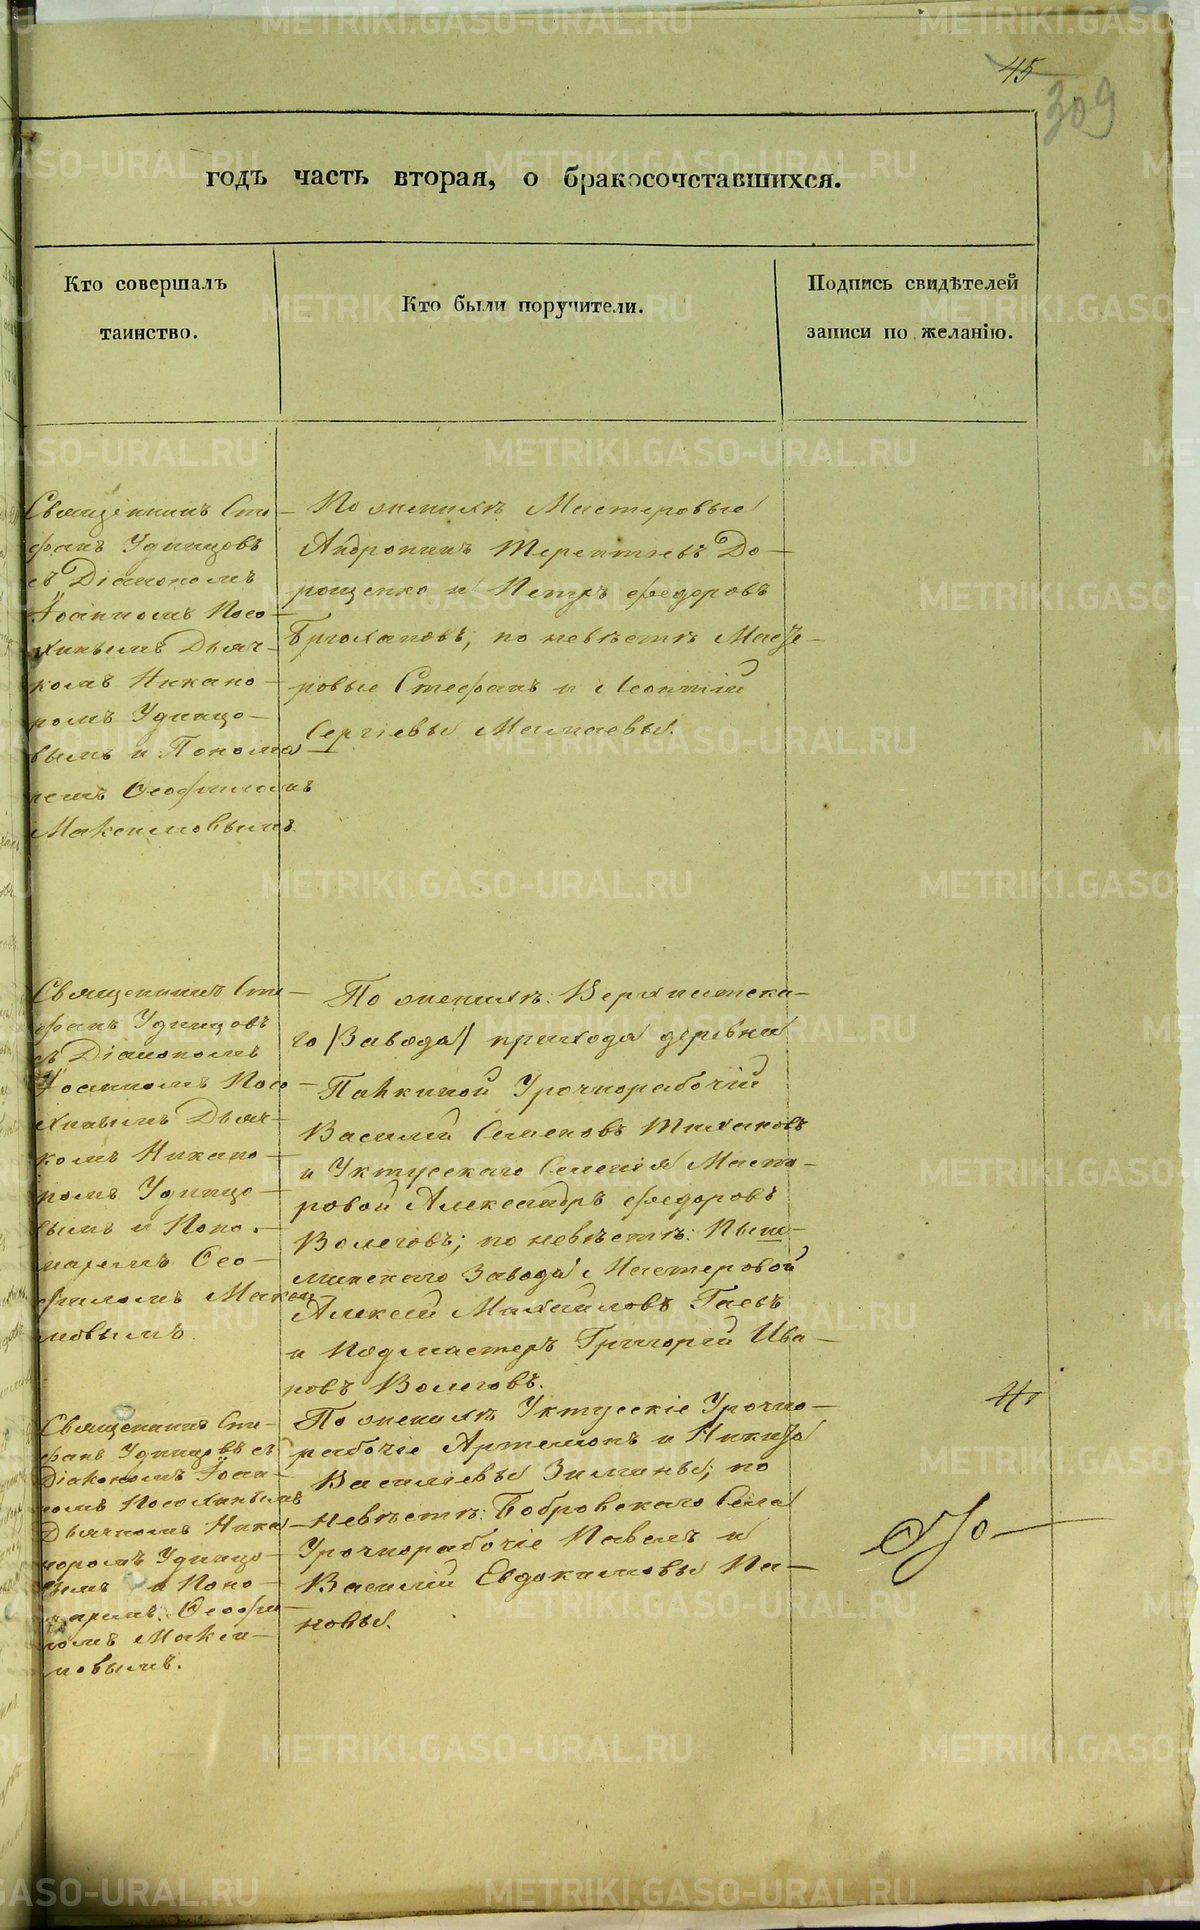 45
309
годъ часть вторая, о бракосочетавшихся.
Кто совершалъ
таинство.
Кто были поручители.
Подпись свидѣтелей
записи по желанію.
Священникъ Сте-
фанъ Удинцовъ
съ Діакономъ
Іоанномъ Посо-
хинымъ Дьяч-
комъ Никано-
ромъ Удинцо-
вымъ и Понома
ремъ Ѳеофиломъ
Максимовымъ.
По женихѣ Мастеровые
Андроникъ Терентьевъ До-
рощенко и Петръ Федоровъ
Брюхановъ, по невѣстѣ Масте-
ровые Стефанъ и Леонтій
Сергіевы Мамаевы.
Священникъ Сте-
фанъ Удинцовъ
съ Діакономъ
Іоанномъ Посо-
хинымъ Дьяч-
комъ Никано-
ромъ Удинцо-
вымъ и Поно-
маремъ Ѳео-
филомъ Макси
мовымъ
По женихѣ: Верхисетска-
го /Завода/ прихода деревни
Палкиной Урочнорабочій
Василій Семеновъ Тихановъ
и Уктусскаго Селенія Масте-
ровой Александръ Федоровъ
Волеговъ; по невѣстѣ: Пыш-
минскаго Завода Мастеровой
Алексѣй Михайловъ Гаевъ
и Подмастеръ Григорій Ива-
новъ Волеговъ.
Священникъ Сте-
фанъ Удинцовъ съ
Діакономъ Іоан-
номъ Посохинымъ
Дьячкомъ Ника-
норомъ Удинцо-
вымъ и Поно-
маремъ Ѳеофи-
ломъ Макси-
мовымъ.
По женихѣ Уктусскіе Урочно-
рабочіе Артемонъ и Никита
Васильевы Зимины; по
невѣстѣ: Бобровскаго Села
Урочнорабочіе Павелъ и
Василій Евдокимовы Па-
новы.
METRIKI.GASO-URAL.RU